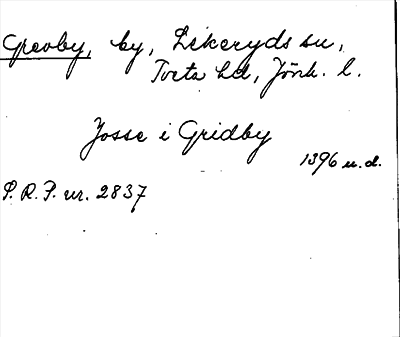 Greoby, by, Lekeryds sn,
Tveta hd, Jönk. l.
Josse i Gridby
1396 u.d.
S.R.P. nr. 2837